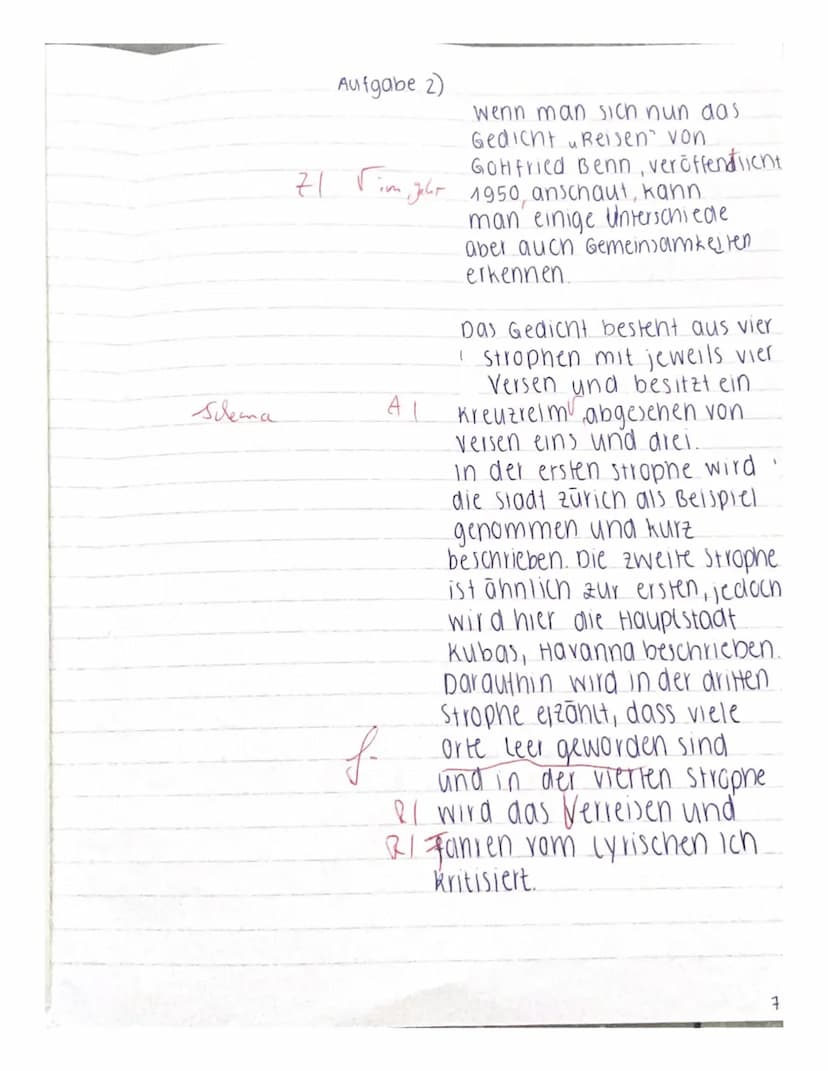 Aufgabe 2)
Wenn man sich nun das
Gedicht „Reisen" von
Gottfried Benn, veröffentlicht
Z| √ im Jahr 1950, anschaut, kann
man einige Unterschiede
aber auch Gemeinsamkeiten
erkennen.
Das Gedicht besteht aus vier
Strophen mit jeweils vier
Versen und besitzt ein
Schema A| Kreuzreim√, abgesehen von
Versen eins und drei.
In der ersten Strophe wird
die Stadt Zürich als Beispiel
genommen und kurz
beschrieben. Die zweite Strophe
ist ähnlich zur ersten, jedoch
wird hier die Hauptstadt
Kubas, Havanna beschrieben.
Daraufhin wird in der dritten
Strophe erzählt, dass viele
f- Orte leer geworden sind
und in der vierten Strophe
R| wird das Verreisen und
R| Fahren vom Lyrischen Ich
kritisiert.
7